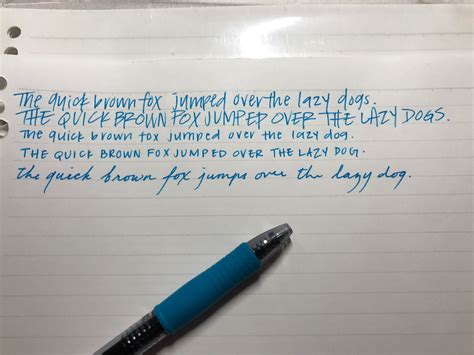 The quick brown fox jumped over the lazy dogs.
THE QUICK BROWN FOX JUMPED OVER THE LAZY DOGS.
The quick brown fox jumped over the lazy dog.
THE QUICK BROWN FOX JUMPED OVER THE LAZY DOG.
the quick brown fox jumps over the lazy dog.